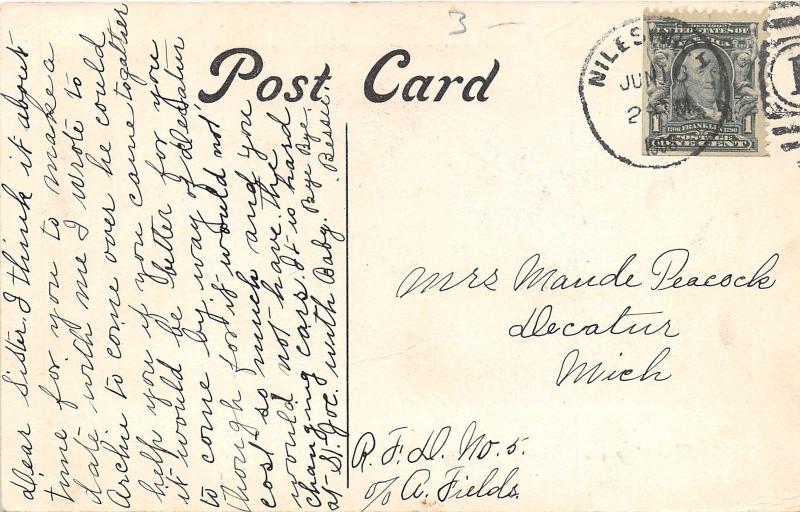 Post Card
NILES
JUN
SERIES 1902
UNITED STATES OF
AMERICA
1706 FRANKLIN 1790
1 POSTAGE 1
ONE CENT
Dear Sister. I think it about
time for you to make a
date with me I wrote to
Archie to come over he could
help you if you came together
it would be better for you
to come by way of Decatur
though for it would not
cost so much and you
would not have the
changing cars. It is hard
at St. Joe. with Baby. Bye Bye.
Bessie.
Mrs Maude Peacock
Decatur
Mich
R. F. D. No. 5.
c/o A. Fields.